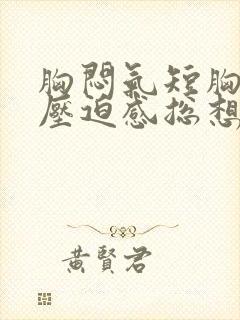 胸悶氣短胸
壓迫感總想
黃賢君